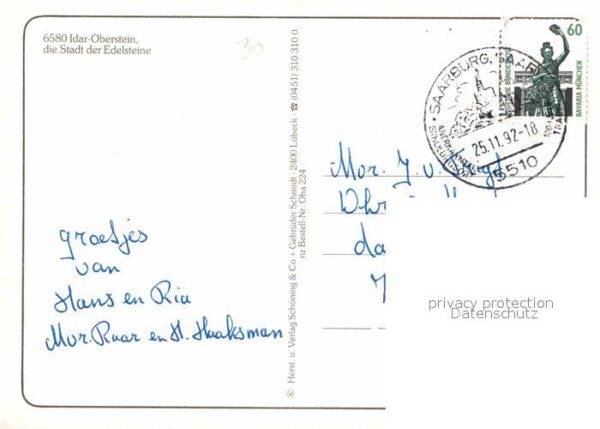 6580 Idar-Oberstein,
die Stadt der Edelsteine
30
60
DEUTSCHE BUNDESPOST
BAVARIA MÜNCHEN
SAARBURG, SAAR
25.11.92-18
5510
groetjes
van
Hans en Ria
Mvr. Ruar en H. Haaksman
© Herst. u. Verlag Schöning & Co + Gebrüder Schmidt · 2400 Lübeck · ☎ (0451) 310 310 0
nz Bestell-Nr. Oba 224
Mvr. J. v.
da
privacy protection
Datenschutz